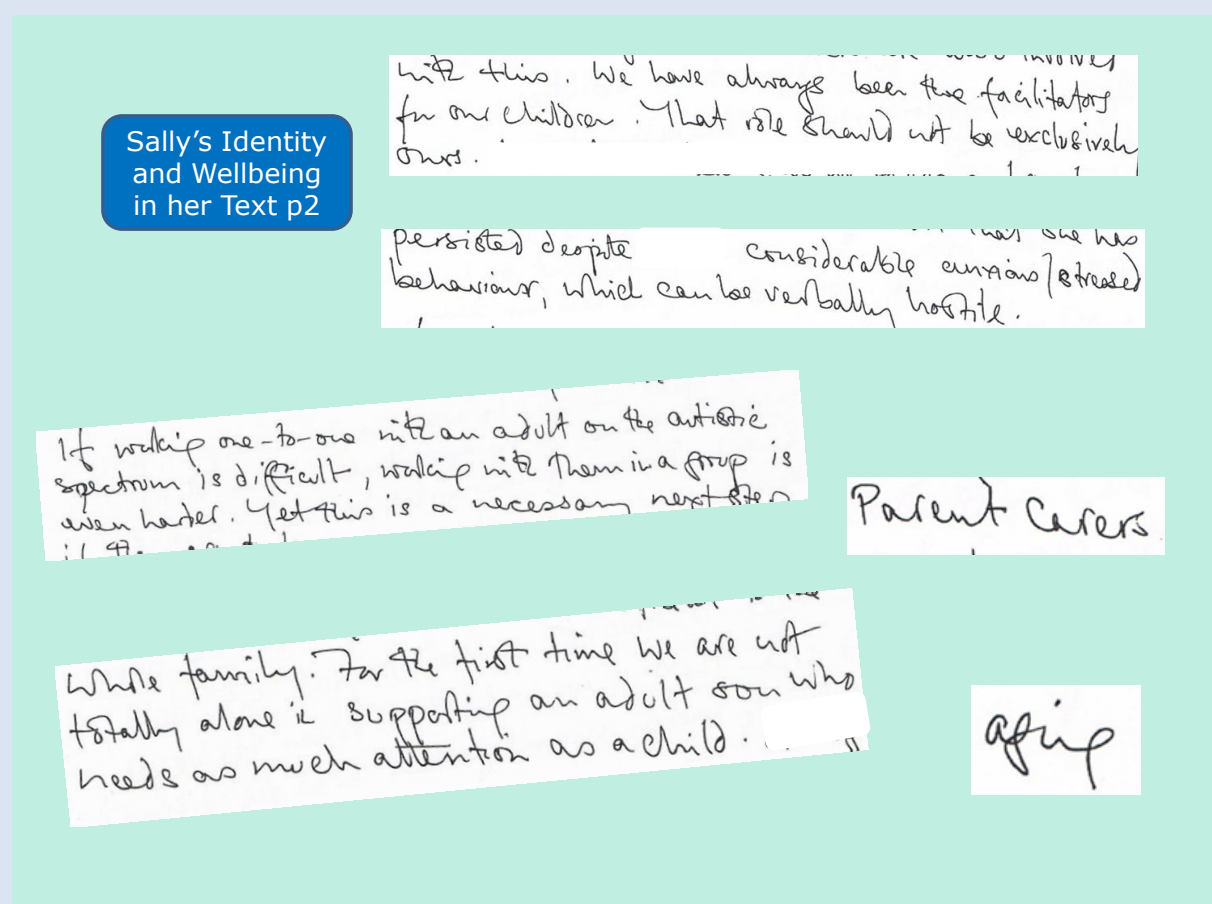 Sally's Identity
and Wellbeing
in her Text p2
with this. We have always been the facilitators
for our children. That role should not be exclusively
ours.
persisted despite considerable anxious/stressed
behaviour, which can be verbally hostile.
If working one-to-one with an adult on the autistic
spectrum is difficult, working with them in a group is
even harder. Yet this is a necessary next step
Parent Carers
whole family. For the first time we are not
totally alone in supporting an adult son who
needs as much attention as a child.
aging